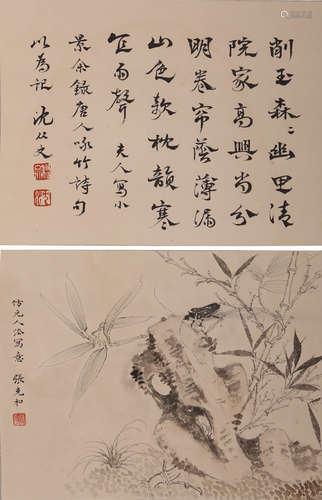 削玉森〻幽思清
院家高興尚分
明卷帘蔭薄漏
山色欹枕韻寒
宜雨聲 夫人寫小
景余錄唐人咏竹詩句
以為記 沈从文
仿元人法寫意 張充和